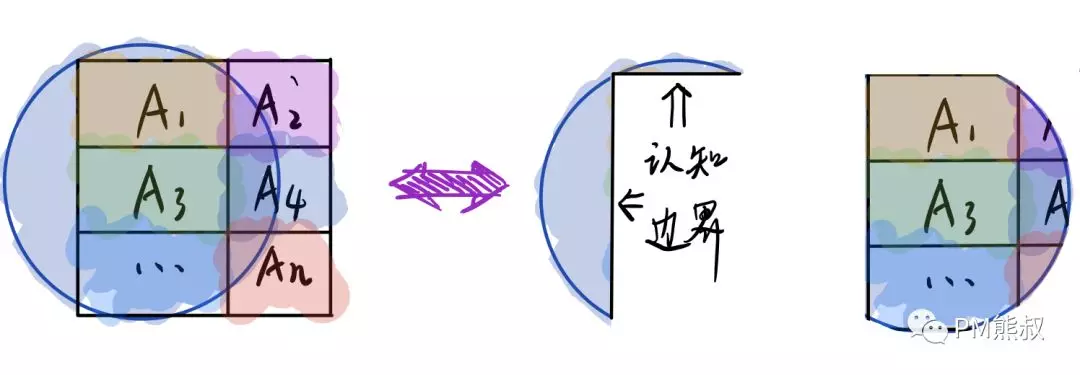 A₁ A₂
A₃ A₄
... An
认知
边界
A₁ A
A₃ A
...
PM熊叔